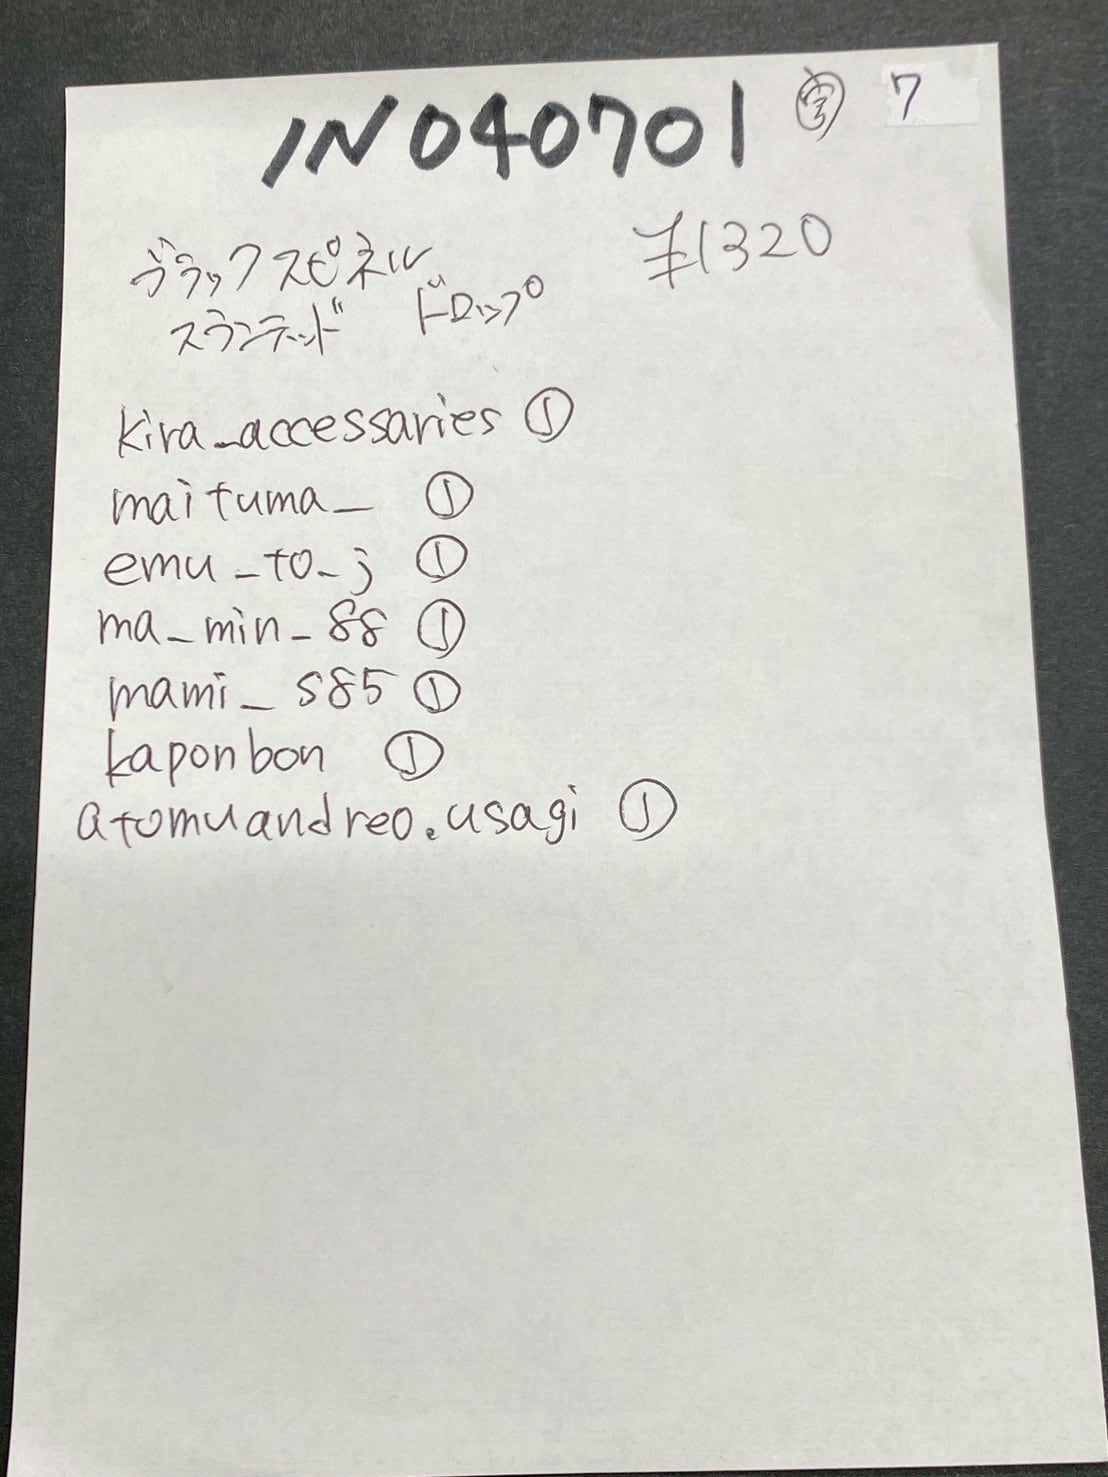 IN040701 7
ブラックスピネル ¥1320
スランテッド ドロップ
kira_accessaries ①
maituma_ ①
emu_to_j ①
ma_min_88 ①
mami_s85 ①
kaponbon ①
atomuandreo.usagi ①